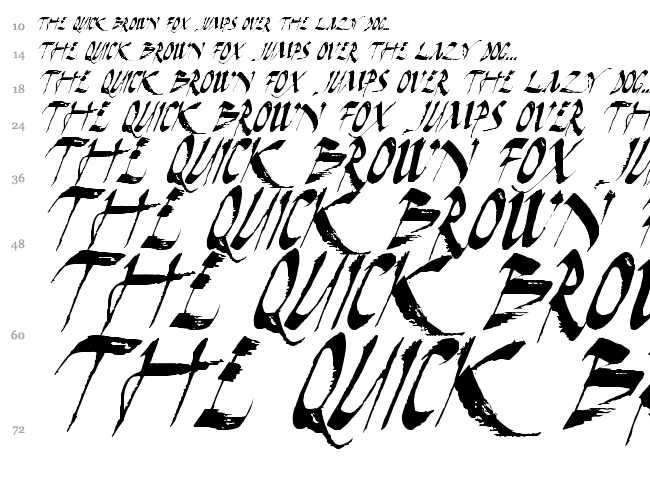 10 THE QUICK BROWN FOX JUMPS OVER THE LAZY DOG...
14 THE QUICK BROWN FOX JUMPS OVER THE LAZY DOG...
18 THE QUICK BROWN FOX JUMPS OVER THE LAZY DOG...
24 THE QUICK BROWN FOX JUMPS OVER TH
36 THE QUICK BROWN FOX JU
48 THE QUICK BROWN
60 THE QUICK BROU
72 THE QUICK B